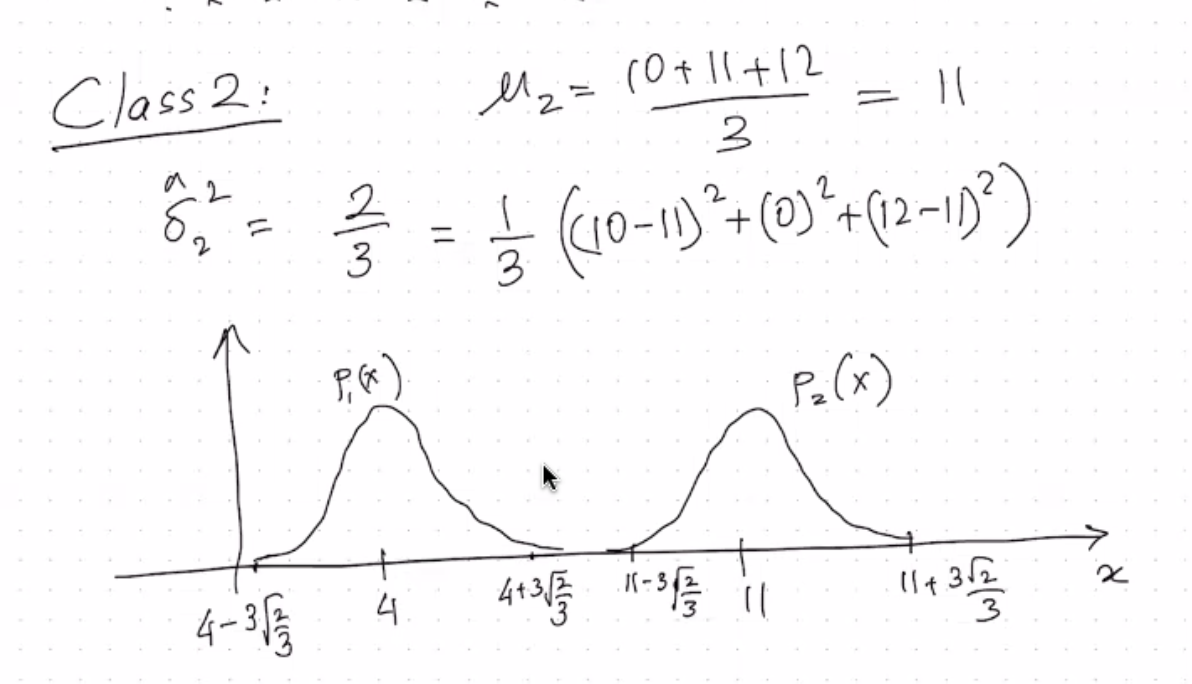 Class 2: μ₂ = (10 + 11 + 12)/3 = 11
σ̂₂² = 2/3 = 1/3 ((10-11)² + (0)² + (12-11)²)
P₁(x) P₂(x)
4-3√(2/3) 4 4+3√(2/3) 11-3√(2/3) 11 11+3√2/3 x